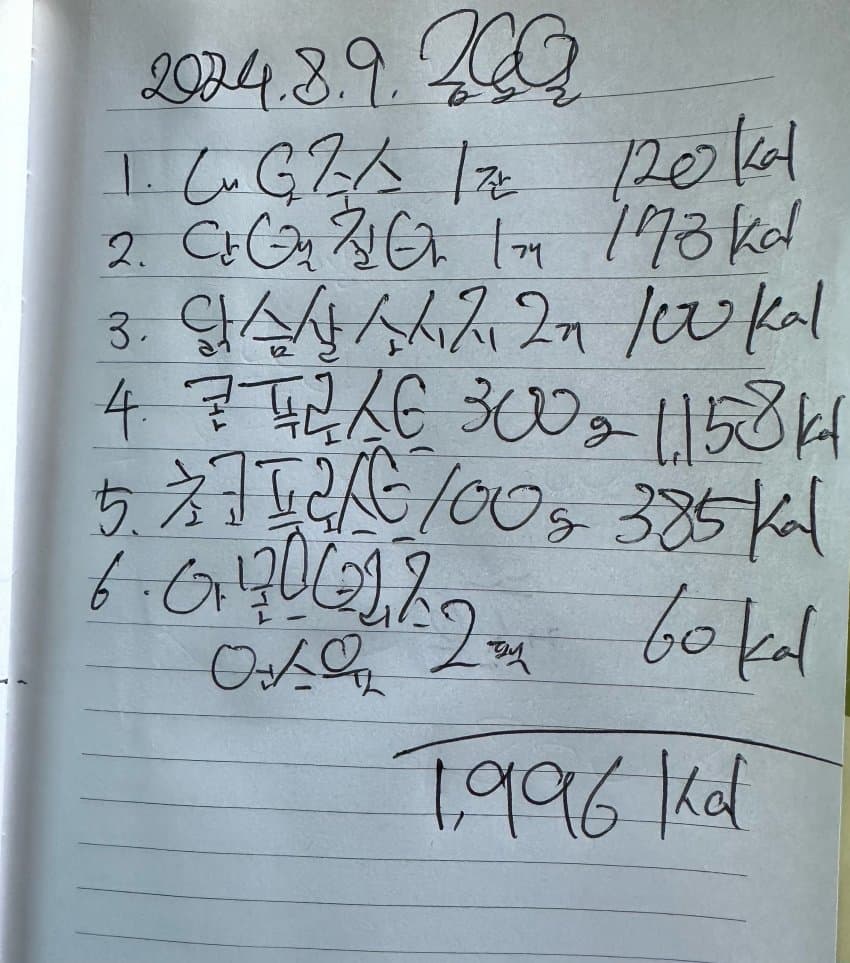 2024.8.9. 금요일
1. 주스 1잔 120 Kal
2. 단백질바 1개 173 Kal
3. 닭슴살 소시지 2개 100 Kal
4. 콘푸로스트 300g 1,158 Kal
5. 초코푸로스트 100g 385 Kal
6. 아몬드브리즈
언스윗 2팩 60 Kal
1,996 Kal